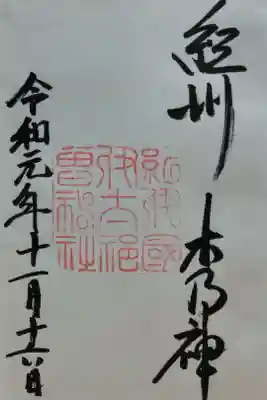 紀州 木乃神
紀伊國
伊太祁
曽神社
令和元年十一月十六日